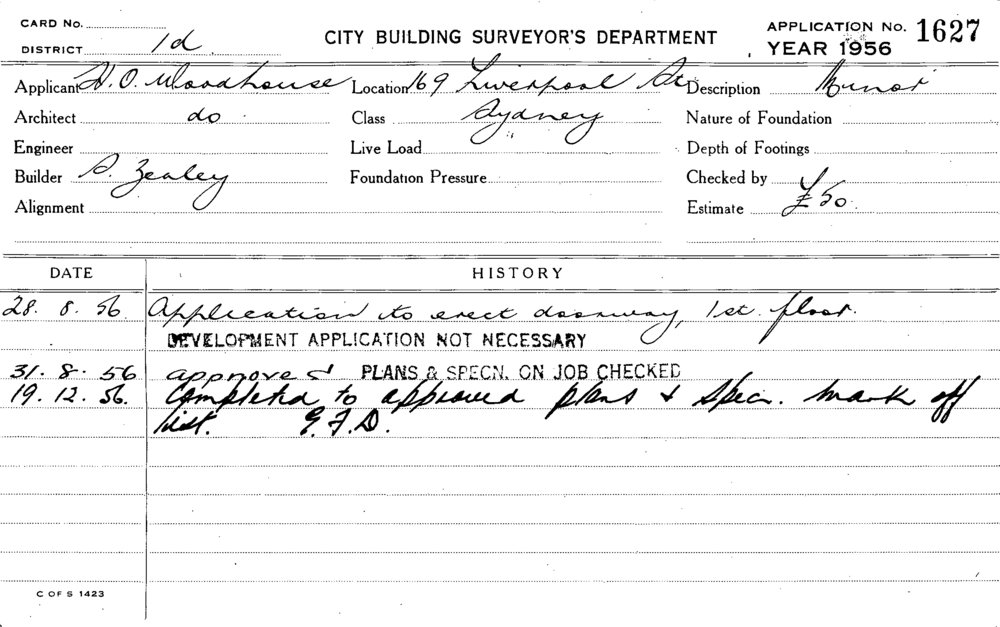 CARD No.
DISTRICT 1d
CITY BUILDING SURVEYOR'S DEPARTMENT
APPLICATION No. 1627
YEAR 1956
Applicant H. O. Woodhouse Location 169 Liverpool St Description Minor
Architect do Class Sydney Nature of Foundation
Engineer Live Load Depth of Footings
Builder S. Zealey Foundation Pressure Checked by
Alignment Estimate £50
DATE HISTORY
28. 8. 56 Application to erect doorway, 1st. floor.
DEVELOPMENT APPLICATION NOT NECESSARY
31. 8. 56 approved PLANS & SPECN. ON JOB CHECKED
19. 12. 56. Completed to approved plans & specn. mark off
list. G.F.D.
C OF S 1423